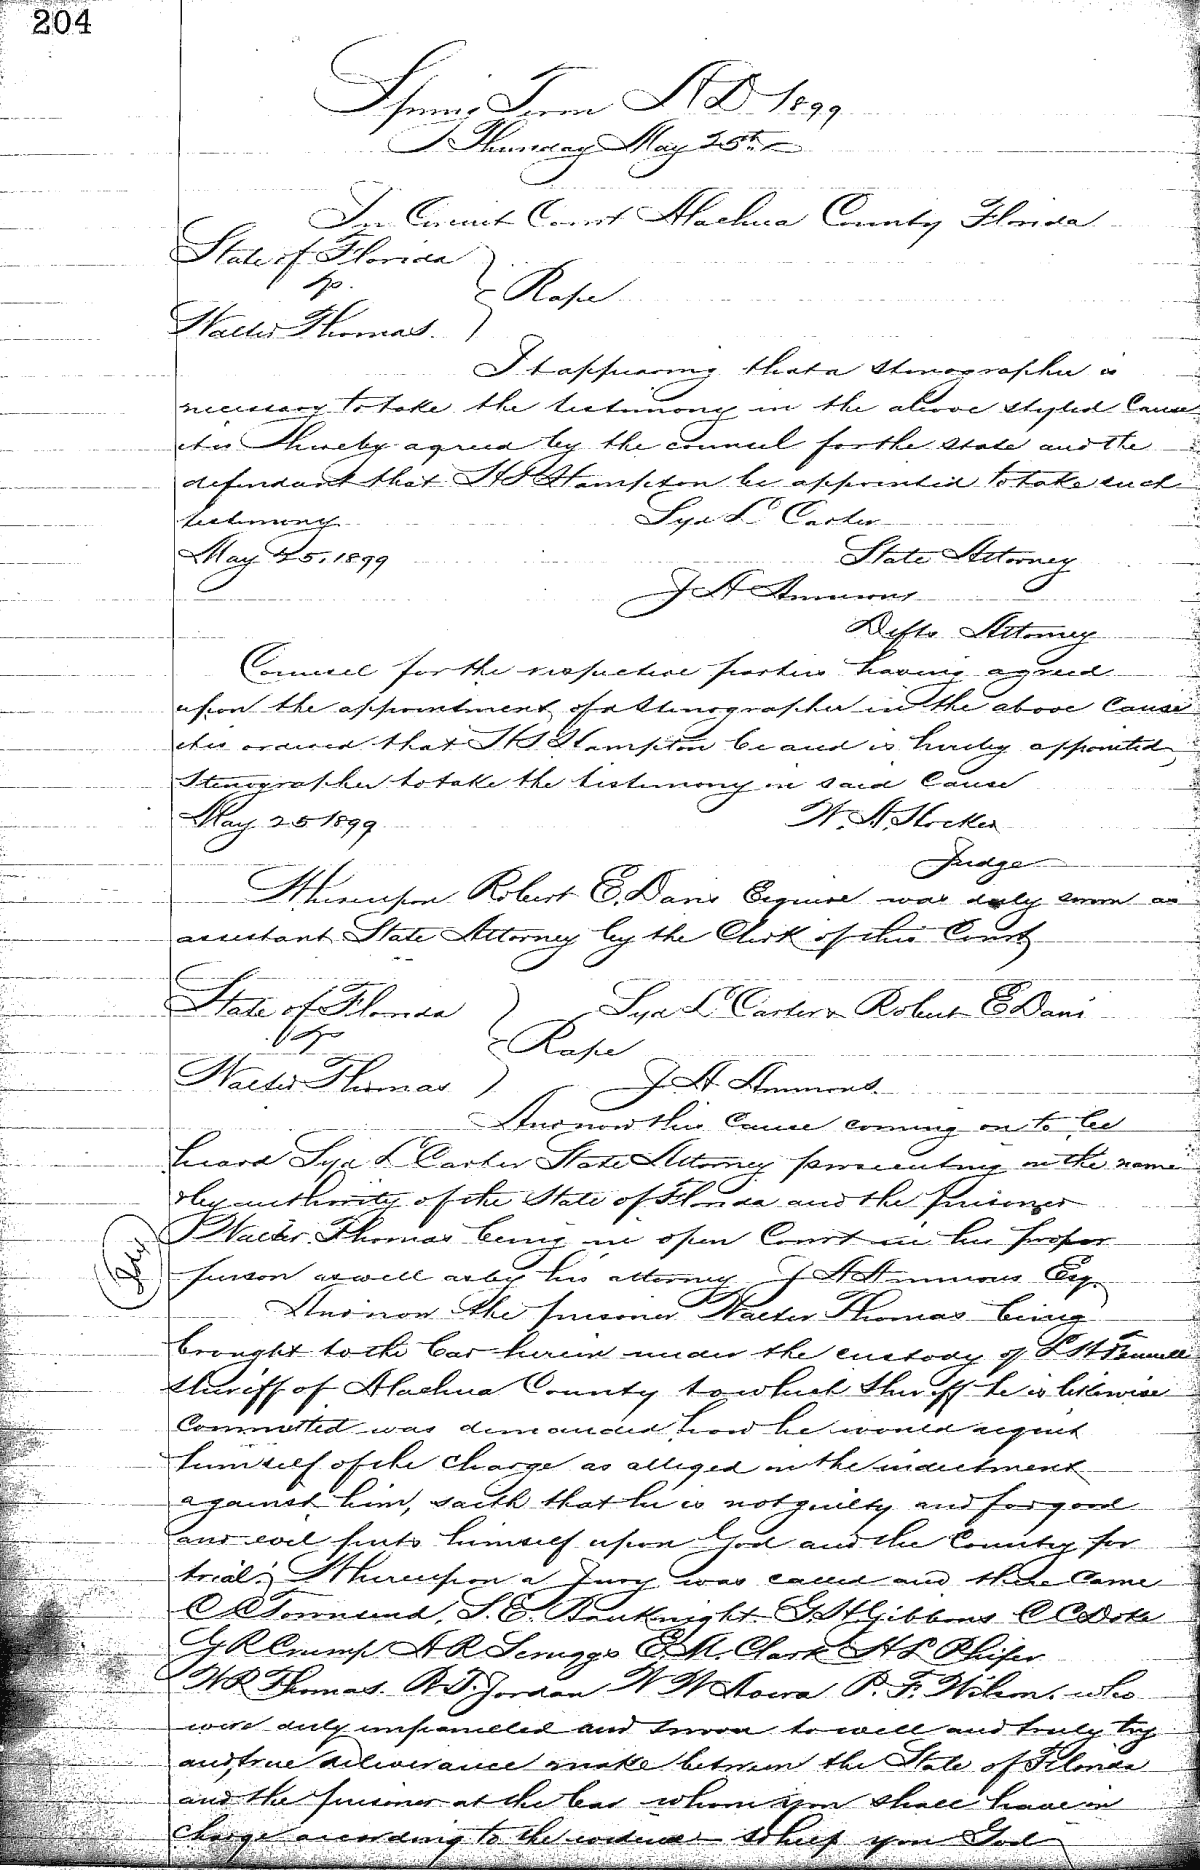 204
Spring Term A D 1899
Thursday May 25th
In Circuit Court Alachua County Florida
State of Florida
vs.
Rape
Walter Thomas.
It appearing that a stenographer is
necessary to take the testimony in the above styled Cause
it is hereby agreed by the counsel for the state and the
defendant that H S Hampton be appointed to take such
testimony
Syd L Carter
May 25, 1899
State Attorney
J A Ammons
Defts Attorney
Counsel for the respective parties having agreed
upon the appointment of a stenographer in the above Cause
it is ordered that H S Hampton be and is hereby appointed
Stenographer to take the testimony in said Cause
May 25 1899
W. A. Hocker
Judge
Whereupon Robert E. Davis Esquire was duly sworn as
assistant State Attorney by the Clerk of this Court
State of Florida
Syd L Carter & Robert E Davis
vs
Rape
Walter Thomas
J A Ammons.
And now this cause coming on to be
heard Syd L Carter State Attorney prosecuting in the name
& by authority of the State of Florida and the prisoner
Walter Thomas being in open Court in his proper
person as well as by his attorney J A Ammons Esq.
And now the prisoner Walter Thomas being
brought to the bar herein under the custody of L W Fennell
sheriff of Alachua County to which sheriff he is likewise
Committed was demanded how he would acquit
himself of the charge as alleged in the indictment
against him, saith that he is not guilty and for good
and evil puts himself upon God and the Country for
trial. Whereupon a Jury was called and there Came
C C Townsend, S. E. Bauknight G H Gibbons C C Doke
G R Crump A R Scruggs E. M. Clark H L Phifer
W R Thomas. R T. Jordan W W P. F. Wilson. who
were duly impanelled and sworn to well and truly try
and true deliverance make between the State of Florida
and the prisoner at the bar whom you shall have in
charge according to the evidence so help you God